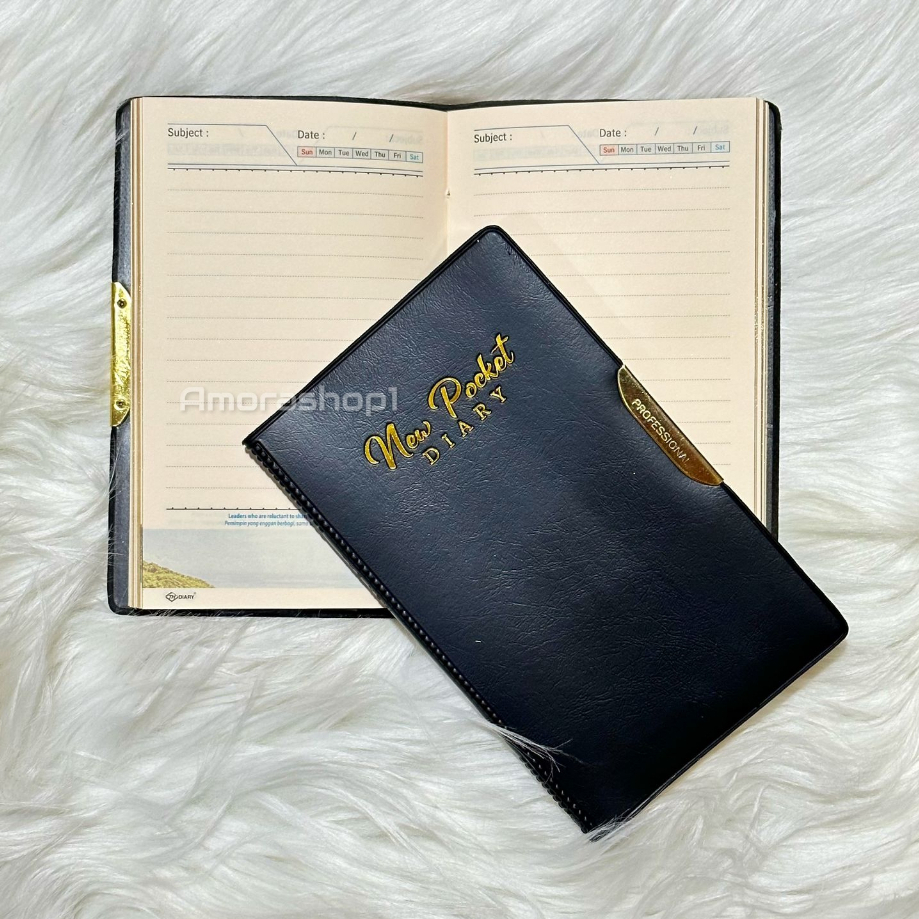 Subject :
Date : / /
Sun Mon Tue Wed Thu Fri Sat
Subject :
Date : / /
Sun Mon Tue Wed Thu Fri Sat
Amorashop1
New Pocket
DIARY
PROFESSIONAL
Leaders who are reluctant to
Pemimpin yang enggan berbagi,
DIARY